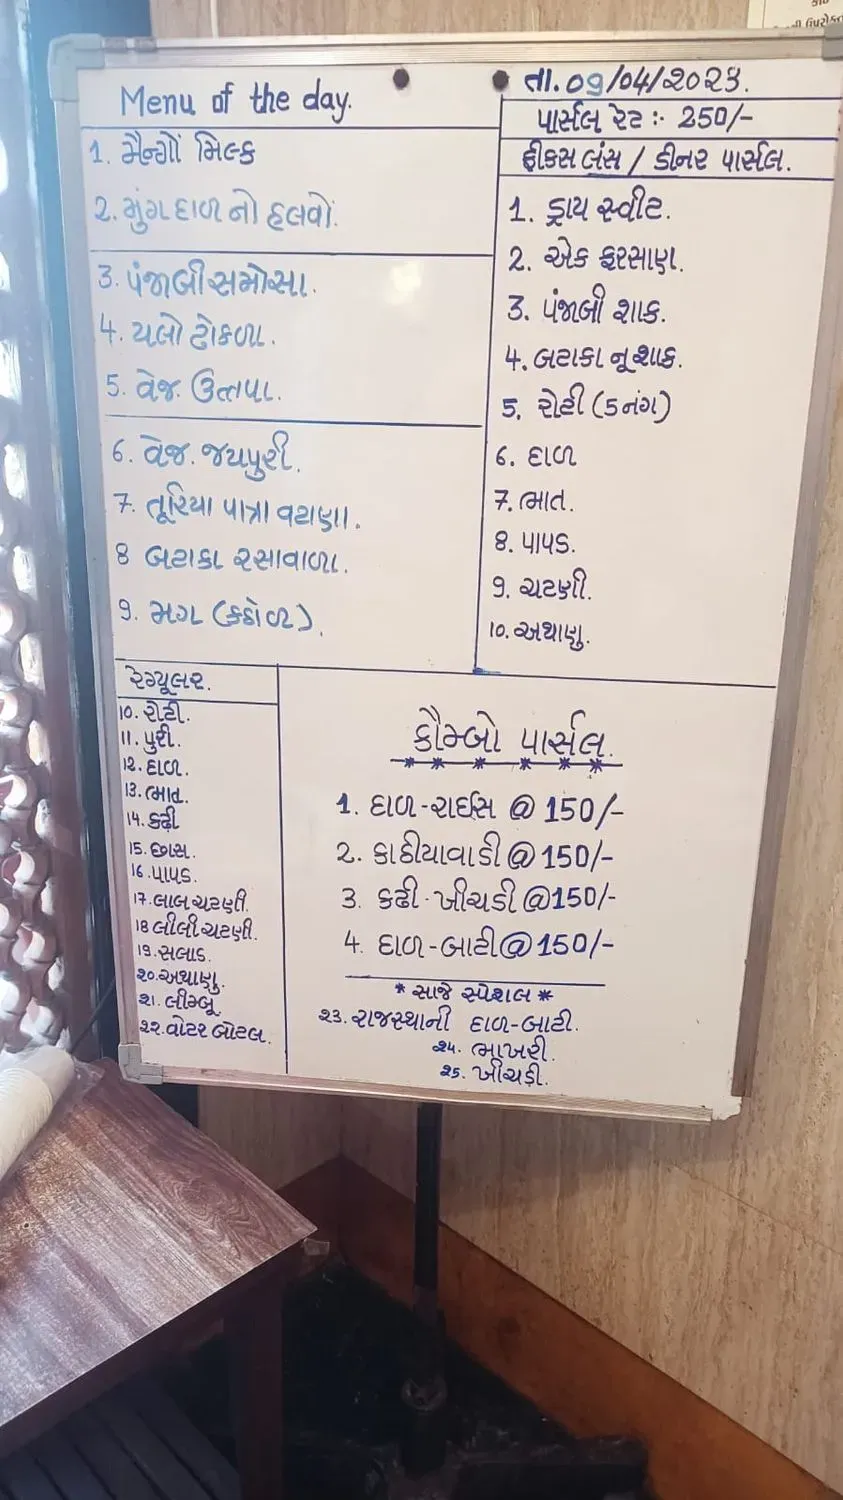 Menu of the day.
1. મૈન્ગોં મિલ્ક
2. મુંગ દાળ નો હલવો.
3. પંજાબી સમોસા.
4. યલો ઢોકળા.
5. વેજ. ઉત્તપા.
6. વેજ. જયપુરી.
7. તૂરિયા પાત્રા વટાણા.
8 બટાકા રસાવાળા.
9. મગ (કઠોળ).
તા.09/04/૨૦૨૩.
પાર્સલ રેટ :- 250/-
ફીકસ લંસ / ડીનર પાર્સલ.
1. ડ્રાય સ્વીટ.
2. એક ફરસાણ.
3. પંજાબી શાક.
4. બટાકા નૂ શાક.
5. રોટી (5 નંગ)
6. દાળ
7. ભાત.
8. પાપડ.
9. ચટણી.
10. અથાણુ.
રેગ્યૂલર.
10. રોટી.
11. પુરી.
12. દાળ.
13. ભાત.
14. કઢી
15. છાસ.
16. પાપડ.
17. લાલ ચટણી.
18 લીલી ચટણી.
19. સલાડ.
૨૦. અથાણુ.
૨1. લીમ્બૂ
૨૨. વોટર બોટલ.
કૌમ્બો પાર્સલ.
1. દાળ-રાઈસ @ 150/-
2. કાઠીયાવાડી @ 150/-
3. કઢી-ખીચડી @ 150/-
4. દાળ-બાટી @ 150/-
* સાજે સ્પેશલ *
૨3. રાજસ્થાની દાળ-બાટી.
૨૪. ભાખરી.
૨5. ખીચડી.